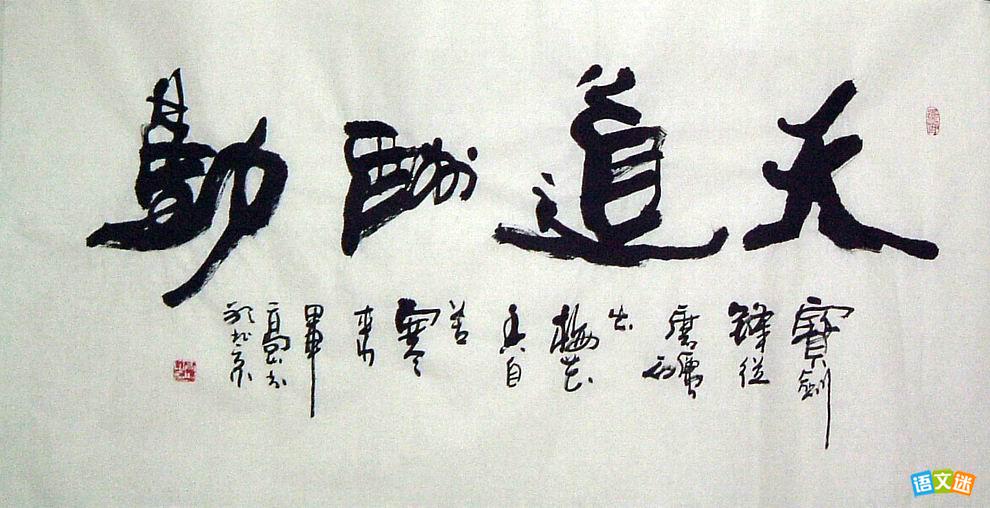 天道酬勤
寶劍
鋒從
磨礪
出
梅花
香自
苦
寒
來
於北京
语文迷